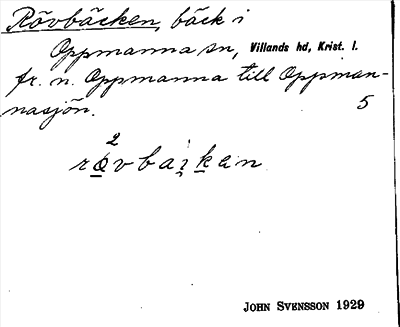 Rövbäcken, bäck i
Oppmanna sn, Villands hd, Krist. l.
fr. n. Oppmanna till Oppman-
nasjön. 5
2
JOHN SVENSSON 1929